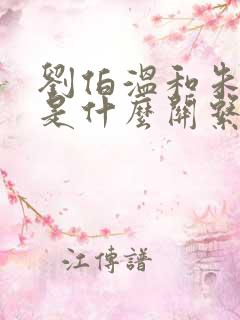 劉伯溫和朱
是什麼關係
江傳譜